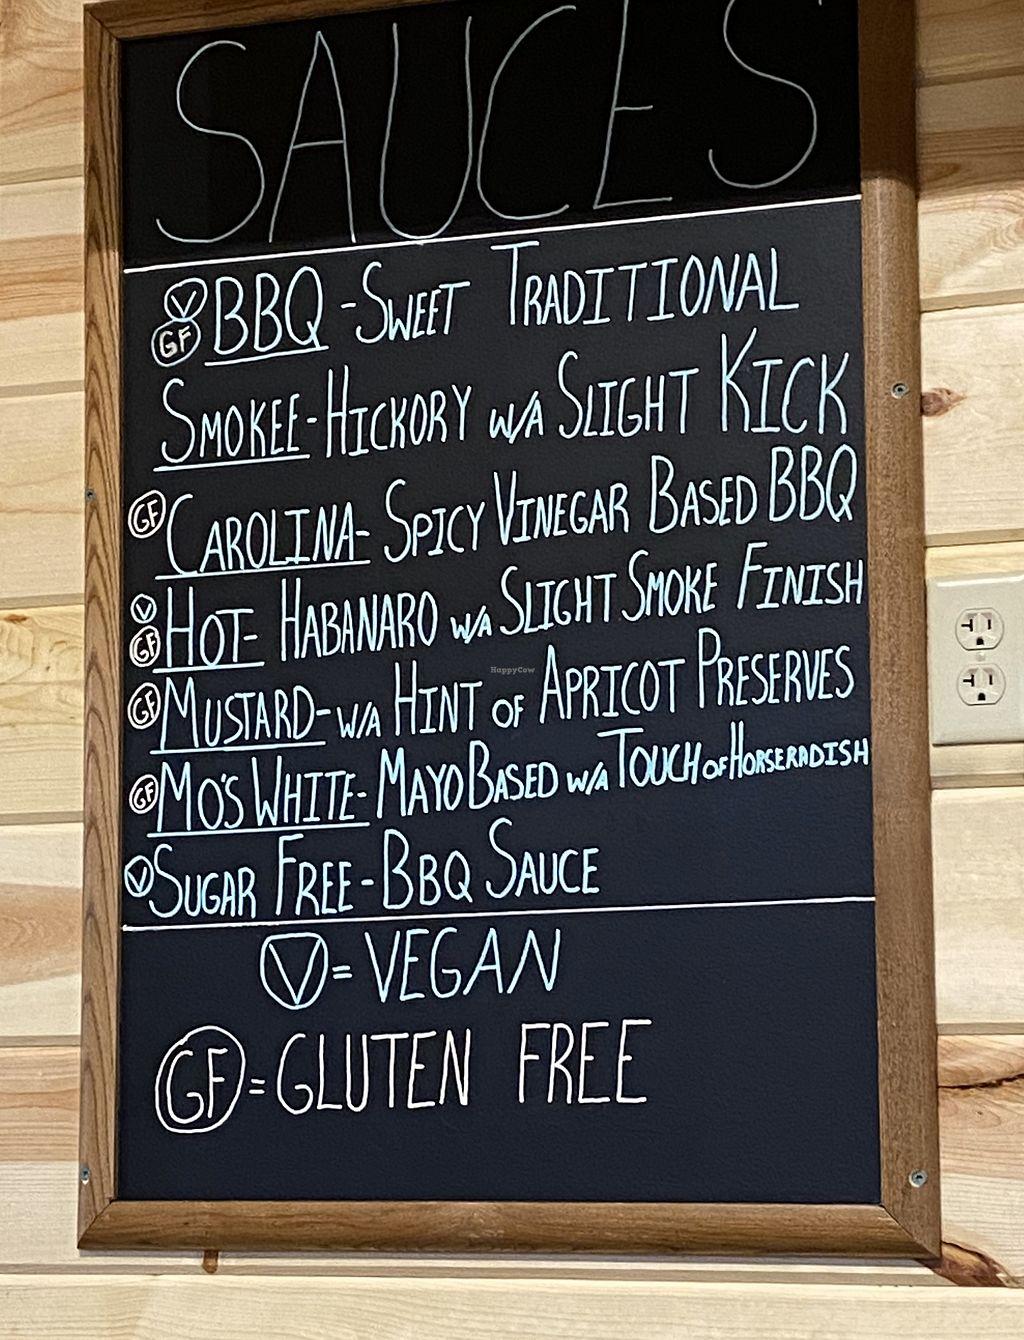 SAUCES
V GF BBQ - SWEET TRADITIONAL
SMOKEE - HICKORY W/A SLIGHT KICK
GF CAROLINA - SPICY VINEGAR BASED BBQ
V GF HOT - HABANARO W/A SLIGHT SMOKE FINISH
GF MUSTARD - W/A HINT OF APRICOT PRESERVES
GF MO'S WHITE - MAYO BASED W/A TOUCH OF HORSERADISH
V SUGAR FREE - BBQ SAUCE
V = VEGAN
GF = GLUTEN FREE
HappyCow